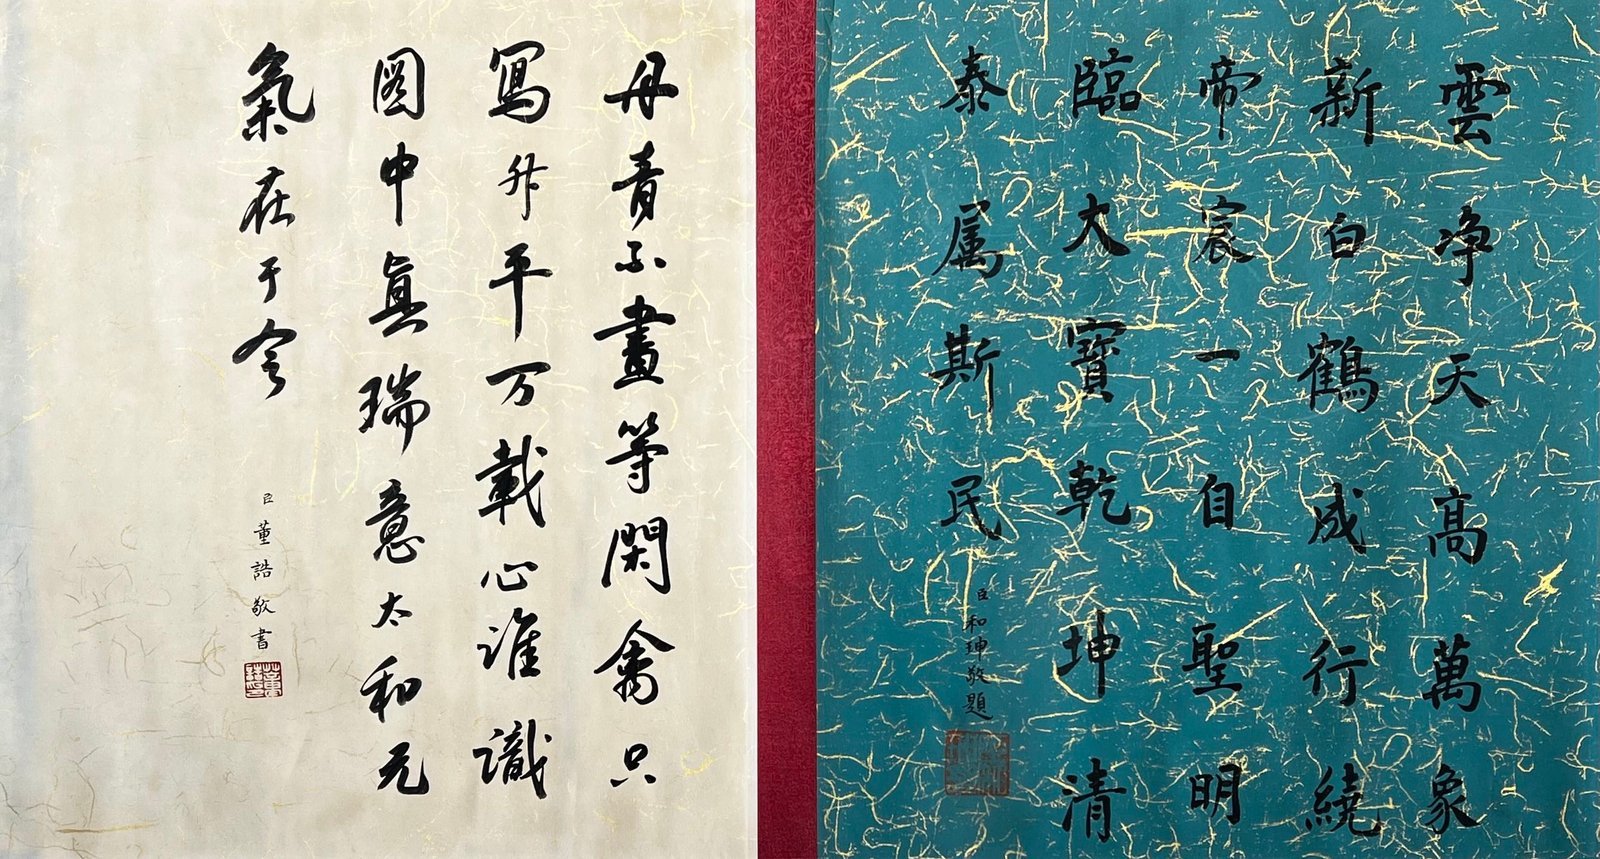 雲净天高萬象
新白鶴成行繞
帝宸一自聖明
臨大寶乾坤清
泰属斯民
臣和珅敬題
丹青不畫等閑禽只
寫升平万載心誰識
圖中真瑞意太和元
氣在于今
臣董誥敬書